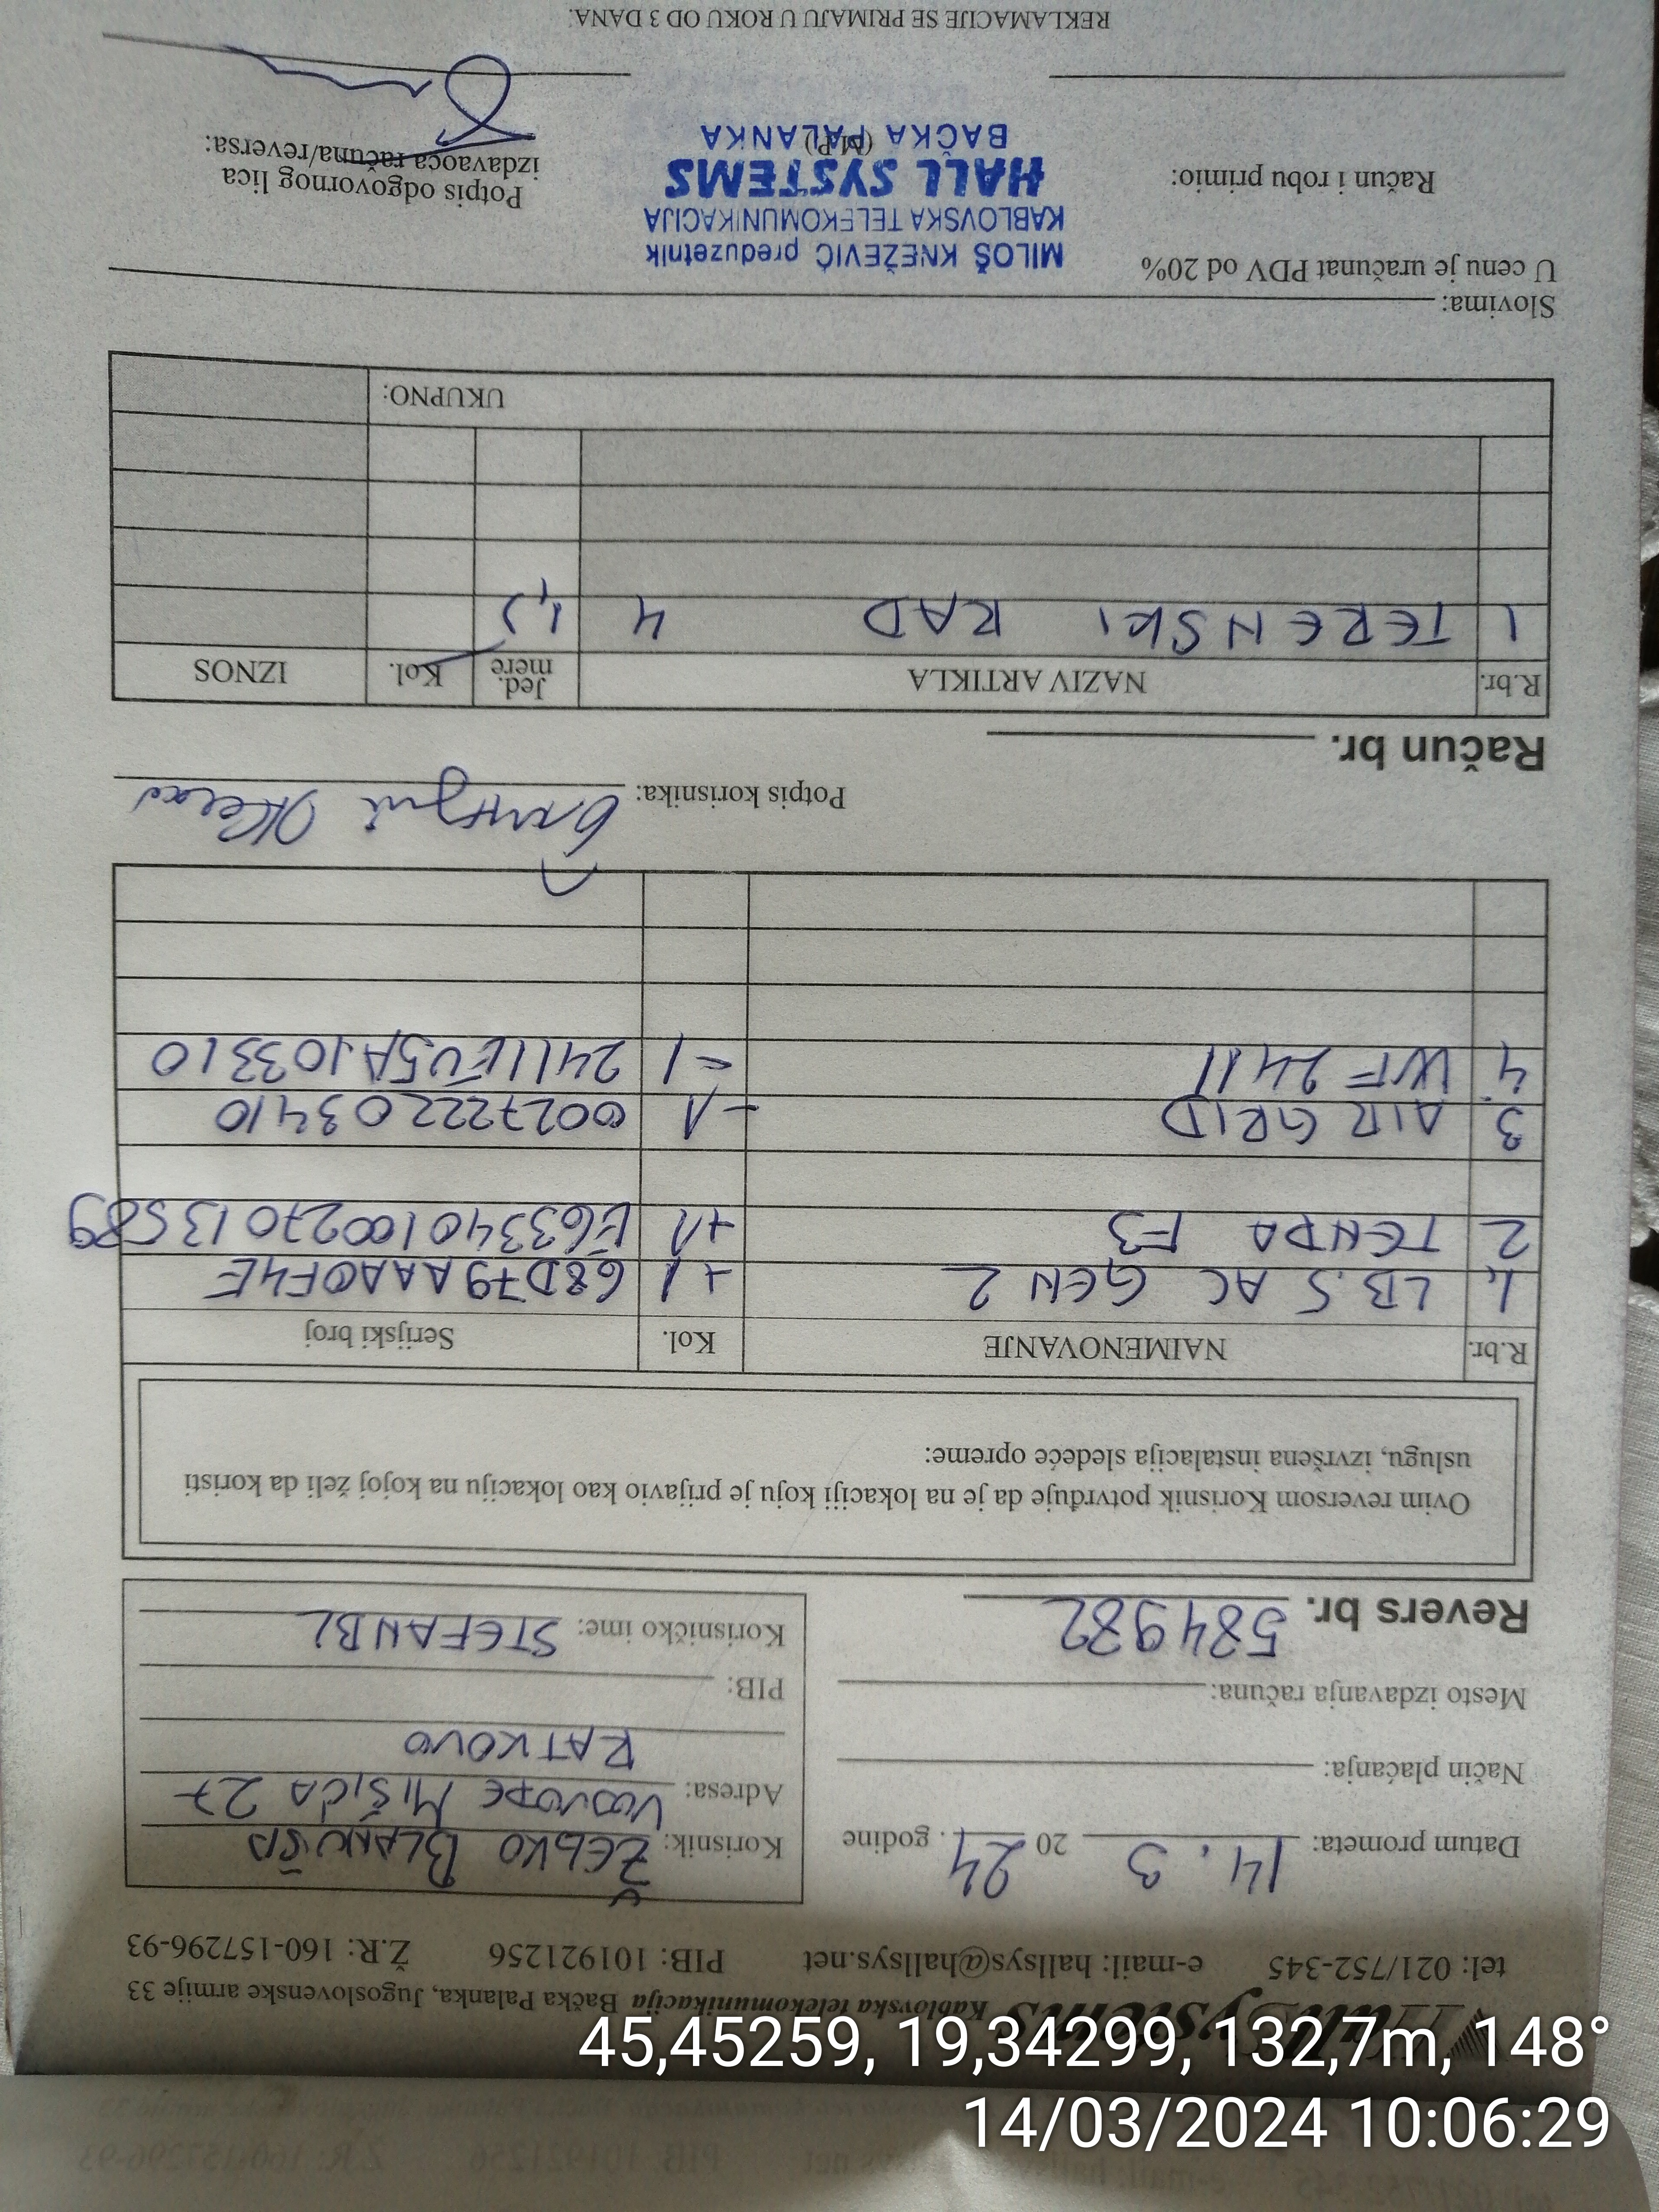 HallSystems Kablovska telekomunikacija Bačka Palanka, Jugoslovenske armije 33
tel: 021/752-345 e-mail: hallsys@hallsys.net PIB: 101921256 Ž.R: 160-157296-93
Datum prometa: 14. 3 20 24. godine
Način plaćanja:
Mesto izdavanja računa:
Revers br. 584982
Korisnik: ŽELJKO BLANUŠA
Adresa: VOJVODE MIŠIĆA 27
RATKOVO
PIB:
Korisničko ime: STEFANBL
Ovim reversom Korisnik potvrđuje da je na lokaciji koju je prijavio kao lokaciju na kojoj želi da koristi
uslugu, izvršena instalacija sledeće opreme:
R.br. NAIMENOVANJE Kol. Serijski broj
1. LB.5 AC GEN 2 +1 68D79AAA0F4E
2 TENDA F3 +1 E6334010027013589
3 AIR GRID -1 002722203410
4. WF 2411 -1 2411EU5A103310
Potpis korisnika:
Račun br.
R.br. NAZIV ARTIKLA Jed. mere Kol. IZNOS
1 TERENSKI RAD 4
UKUPNO:
Slovima:
U cenu je uračunat PDV od 20%
MILOŠ KNEŽEVIĆ preduzetnik
KABLOVSKA TELEKOMUNIKACIJA
HALL SYSTEMS
BAČKA PALANKA
(M.P.)
Račun i robu primio:
Potpis odgovornog lica
izdavaoca računa/reversa:
REKLAMACIJE SE PRIMAJU U ROKU OD 3 DANA.
45,45259, 19,34299, 132,7m, 148°
14/03/2024 10:06:29